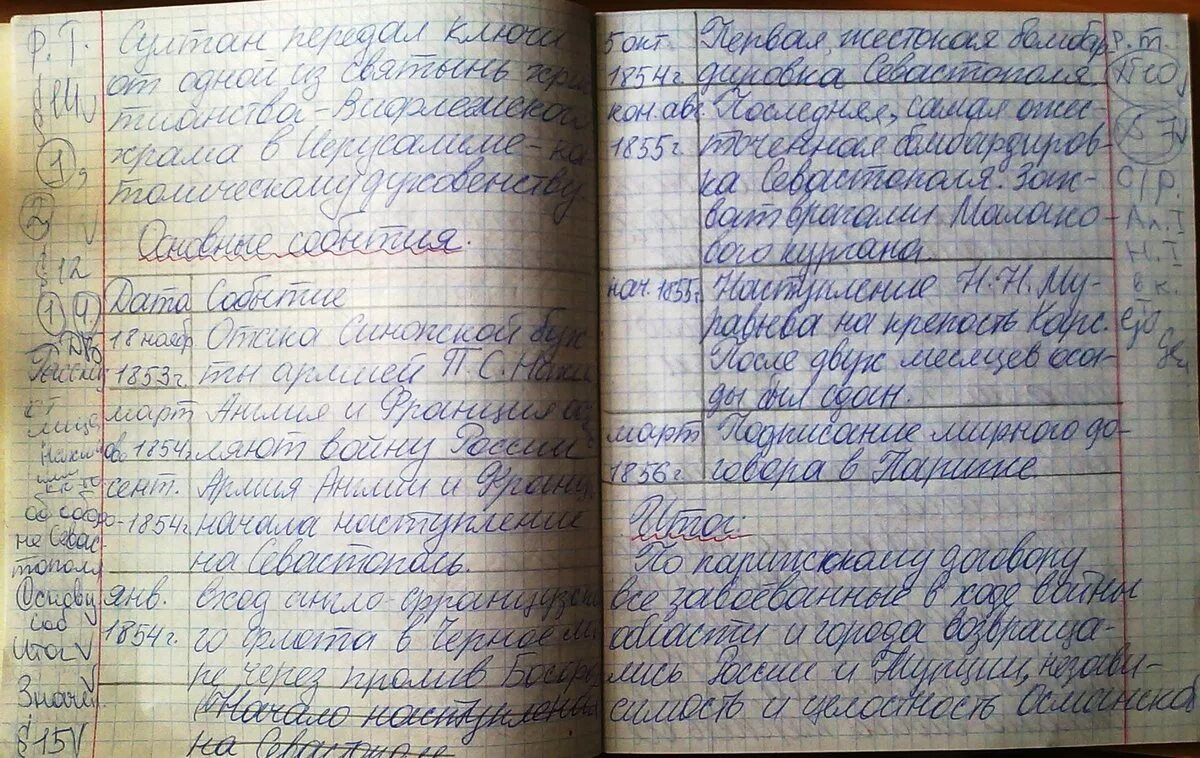 Р.Т.
§14
1,
2
§12
1 4
Д/З
об оборо-
не Севас-
тополя
Основн
соб
Итог
Значе
§15
Султан передал ключи
от одной из святынь хрис
тианства - Вифлеемской
храма в Иерусалиме - ка
толическому духовенству
Основные события.
Дата Событие
18 нояб Отака Синопской бух
1853г. ты армией П.С. Нахи
март Англия и Франция объ
1854г. ляют войну России
сент. Армия Англии и Франц
1854г. начала наступление
на Севастополь.
янв. вход англо-французск
1854г. го флота в Черное мо
ре через пролив Босфор
Начало наступления
на Севастополь
5 окт. Первая, жестокая бомбар
1854г. дировка Севастополя.
кон. авг. Последняя, самая ожес-
1855г. точенная бомбардиров-
ка Севастополя. Зах-
ват врагами Малахо-
вого кургана.
нач. 1855г. Наступление Н.Н. Му-
равьева на крепость Карс.
После двух месяцев оса-
ды был сдан.
март Подписание мирного до-
1856г. говора в Париже
Итог:
По парижскому договору
все завоёванные в ходе войны
области и города возвраща-
лись России и Турции, незави-
симость и целостность Османской
Р.Т.
№10
С/Р.